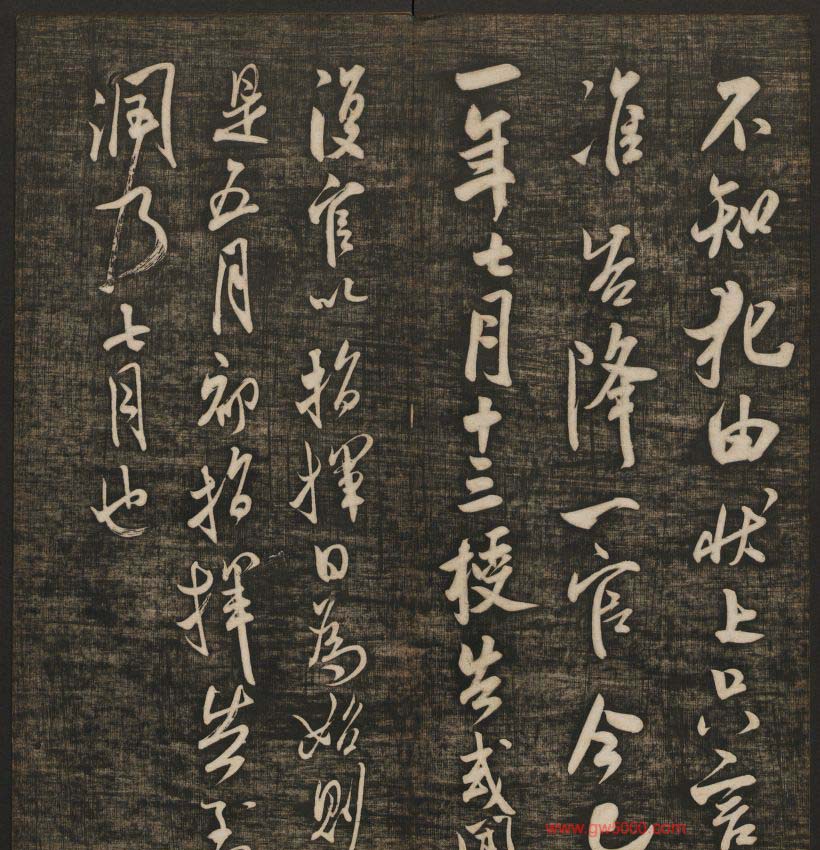 不知犯由状上只言
准告降一官今已
一年七月十三授告或闻
復官以指揮日為始則
是五月初指揮告到
潤乃七月也
www.gw5000.com